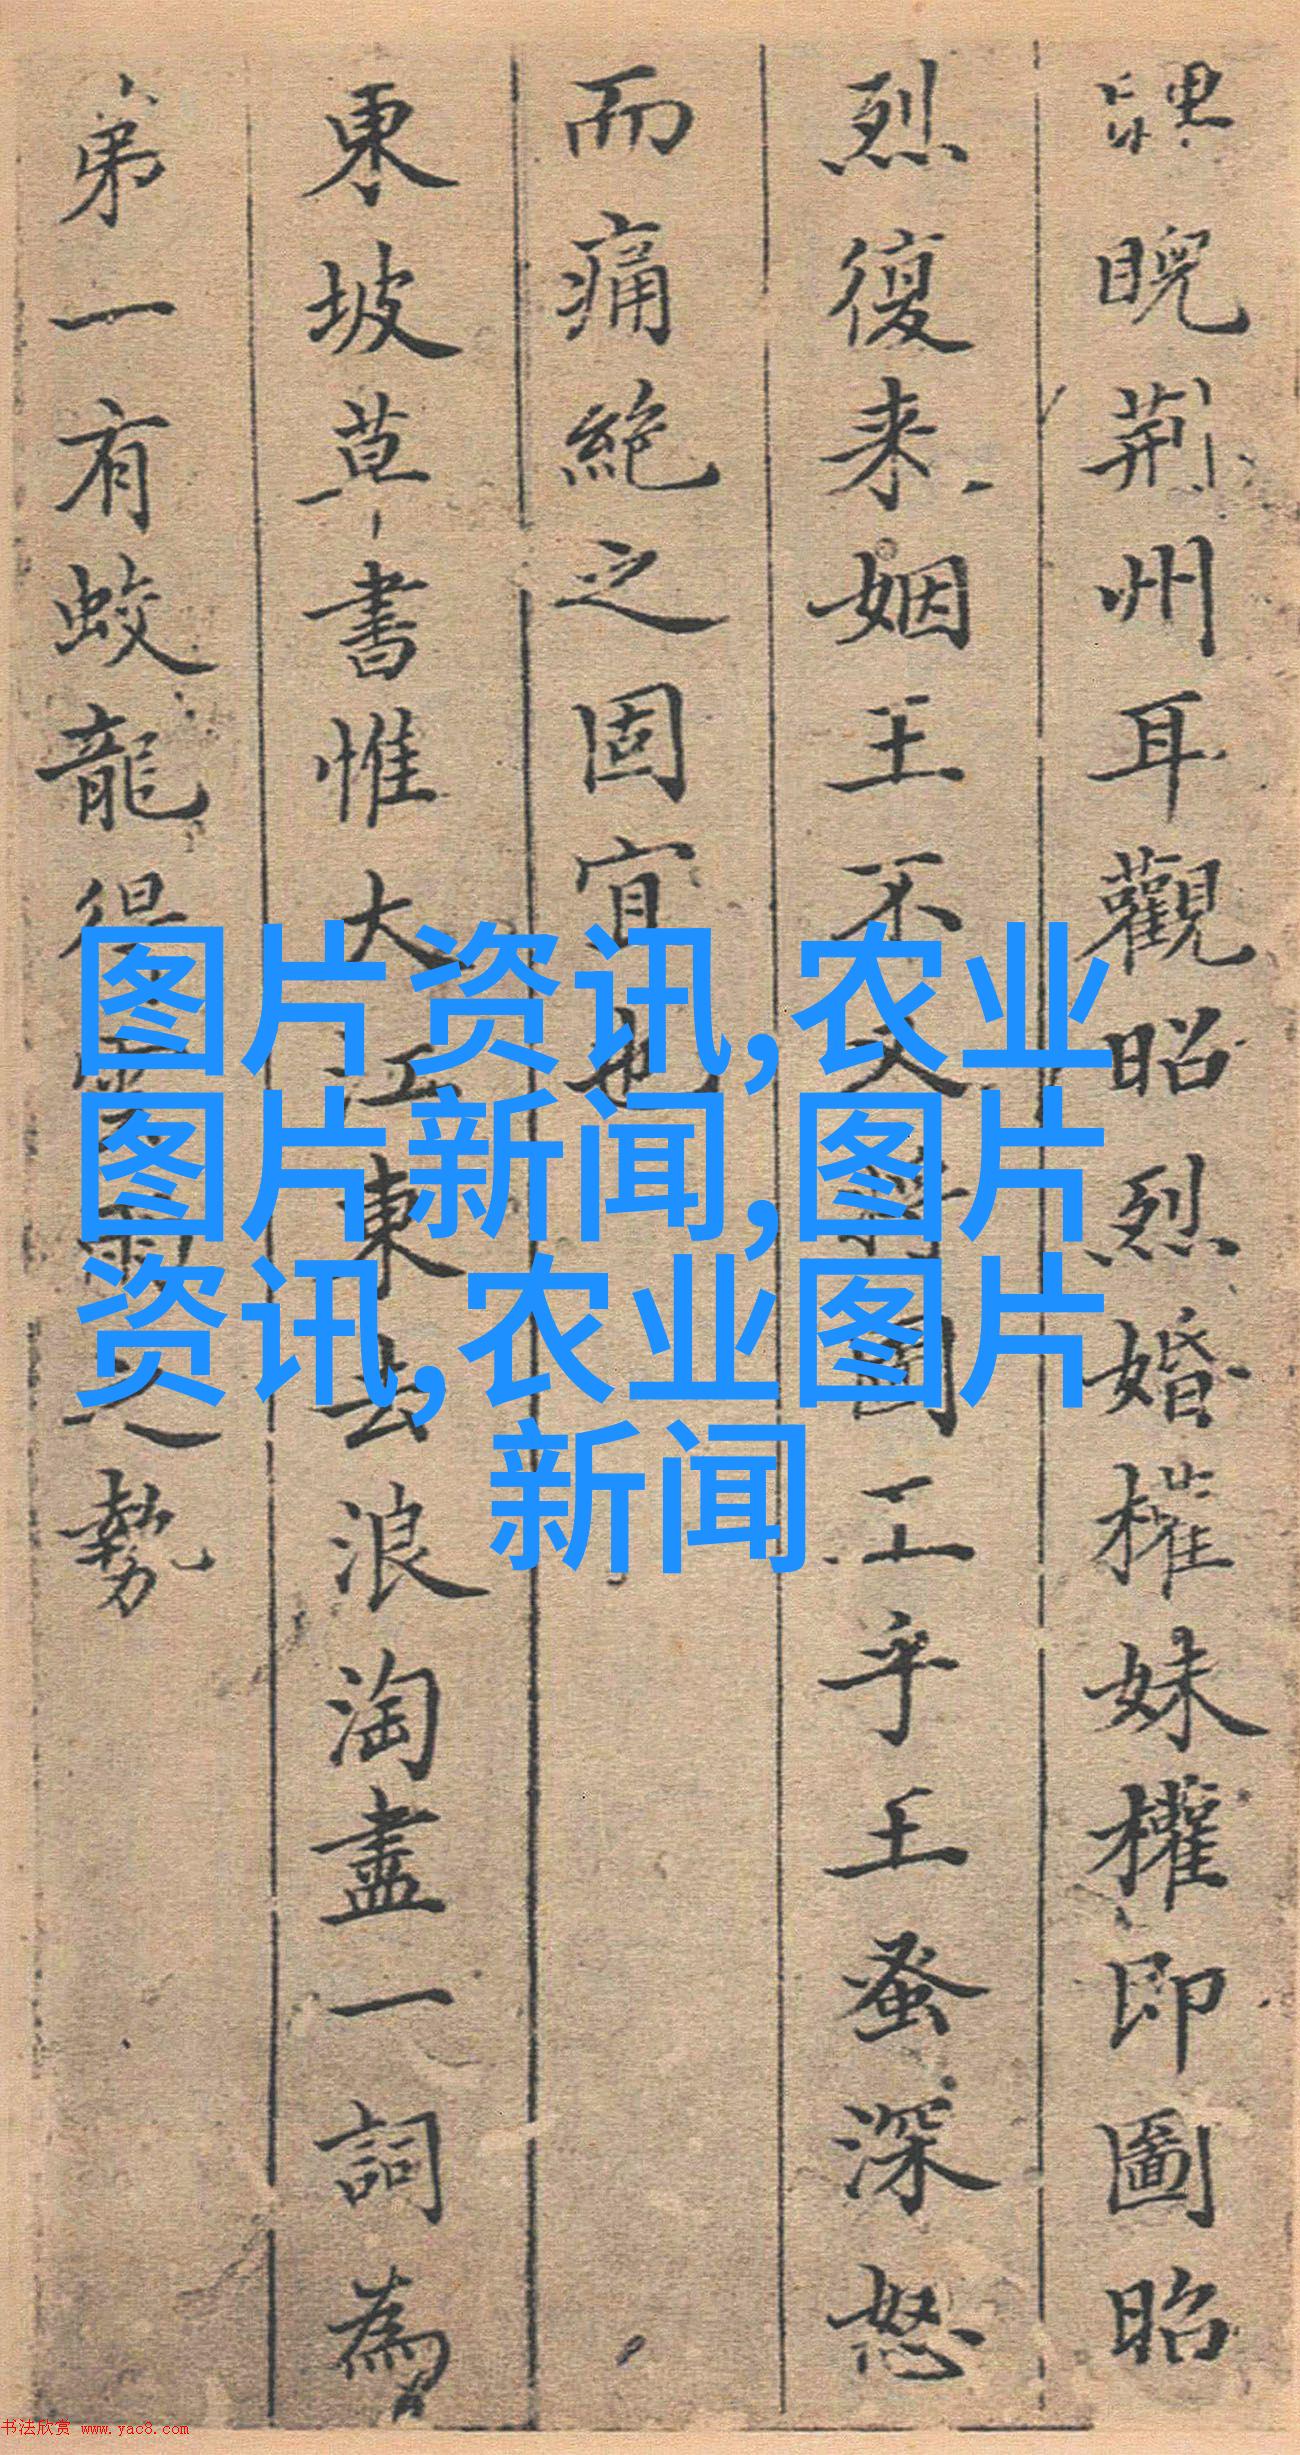 睨荆州耳觀昭烈婚權妹權即圖昭
烈復来姻王不乎王蚤深怒
而痛絶之固宜也
東坡草書惟大江東去浪淘盡一詞為
弟一有蛟龍得雲雨之勢
图片资讯,农业
图片新闻,图片
资讯,农业图片
新闻
书法欣赏 www.yac8.com